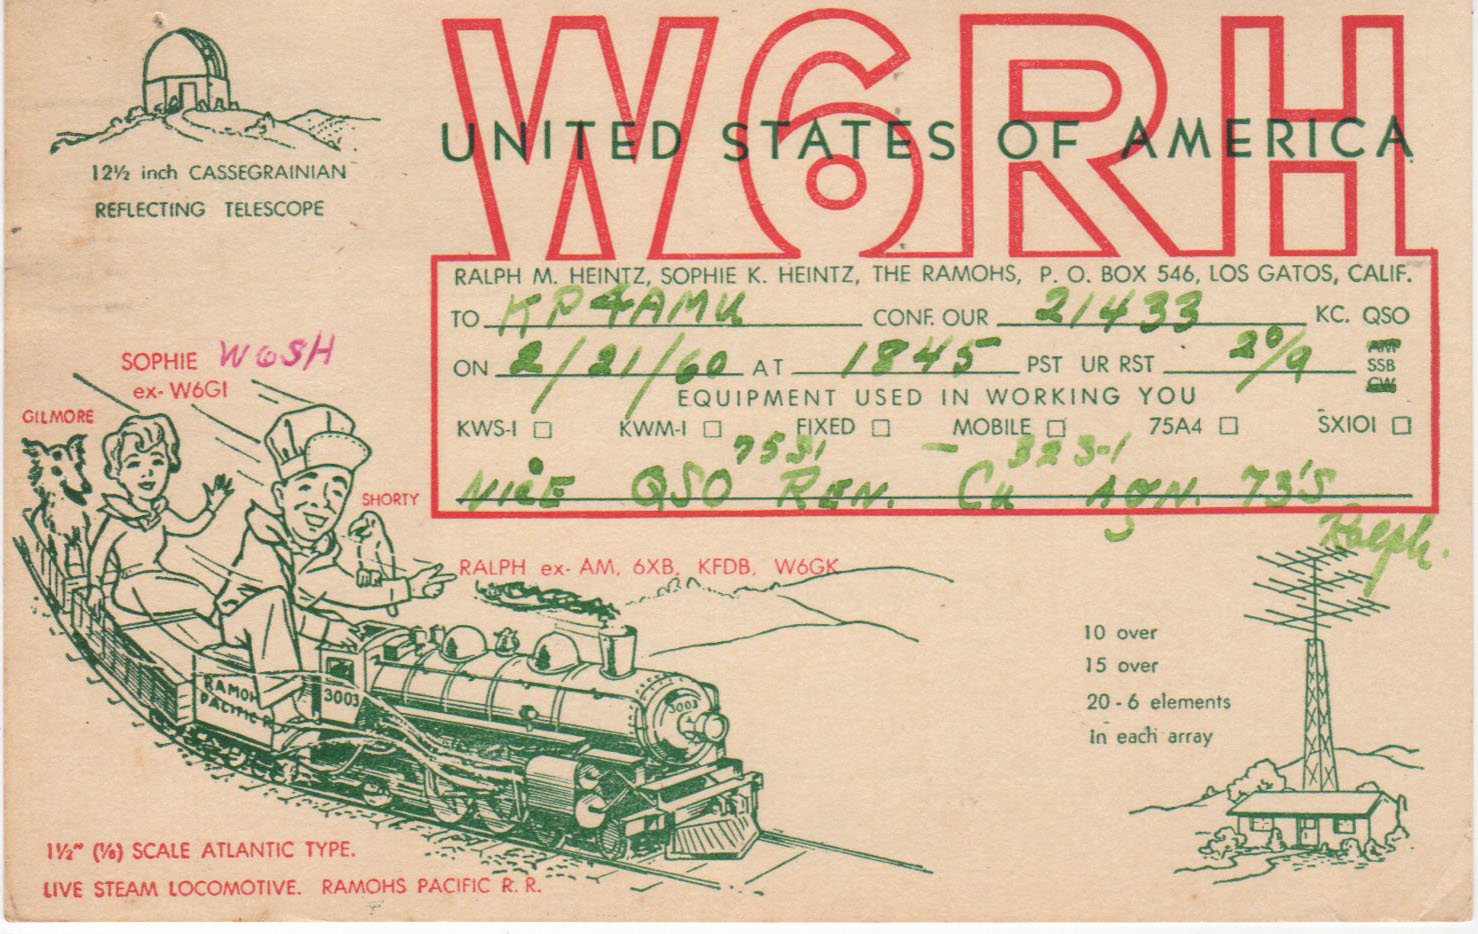 W6RH
UNITED STATES OF AMERICA
12½ inch CASSEGRAINIAN
REFLECTING TELESCOPE
RALPH M. HEINTZ, SOPHIE K. HEINTZ, THE RAMOHS, P. O. BOX 546, LOS GATOS, CALIF.
TO KP4AMU CONF. OUR 21433 KC. QSO
ON 2/21/60 AT 1845 PST UR RST 20/9 AM SSB CW
EQUIPMENT USED IN WORKING YOU
KWS-1 □ KWM-1 □ FIXED □ MOBILE □ 75A4 □ SX101 □
75S1 — 32S-1
NICE QSO REN. CU AGN. 73'S
Ralph.
SOPHIE W6SH
ex- W6GI
GILMORE
SHORTY
RALPH ex- AM, 6XB, KFDB, W6GK
RAMOH
PACIFIC R
3003
3003
10 over
15 over
20 - 6 elements
in each array
1½" (⅛) SCALE ATLANTIC TYPE.
LIVE STEAM LOCOMOTIVE. RAMOHS PACIFIC R. R.